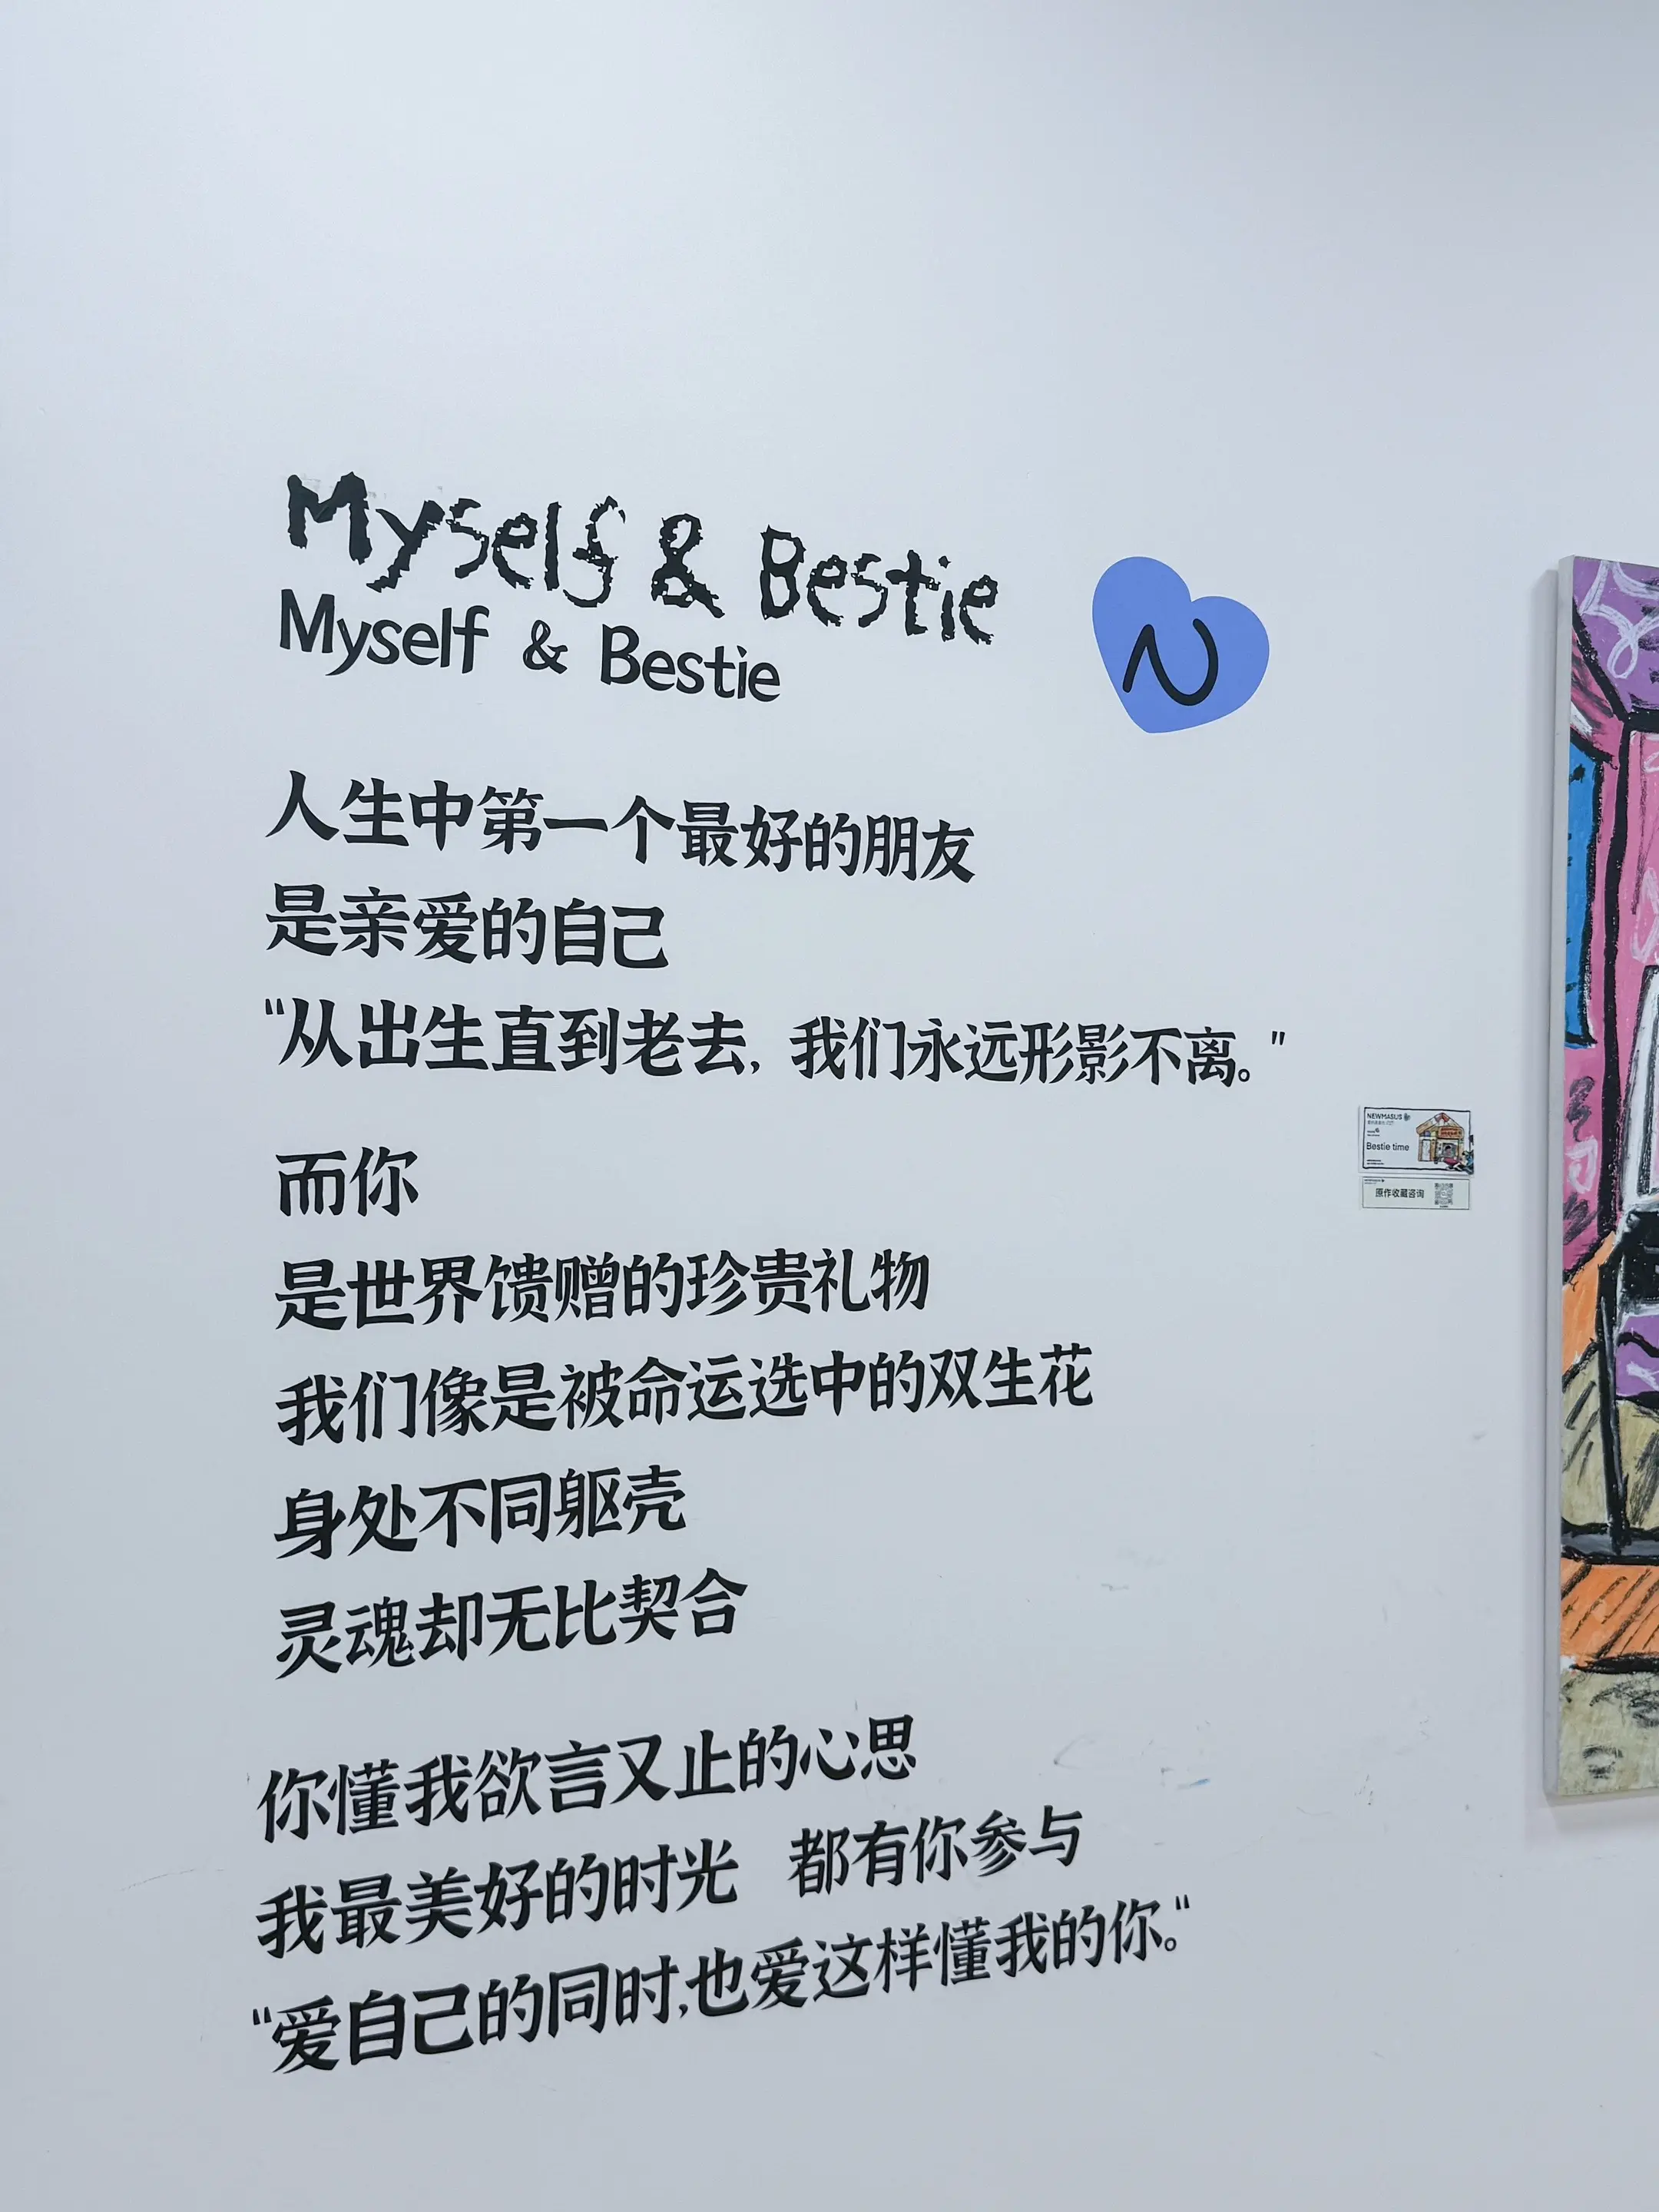 Myself & Bestie
Myself & Bestie
N
人生中第一个最好的朋友
是亲爱的自己
"从出生直到老去, 我们永远形影不离。"
而你
是世界馈赠的珍贵礼物
我们像是被命运选中的双生花
身处不同躯壳
灵魂却无比契合
你懂我欲言又止的心思
我最美好的时光 都有你参与
"爱自己的同时,也爱这样懂我的你。"
NEWMASUS
Bestie time
原作收藏咨询